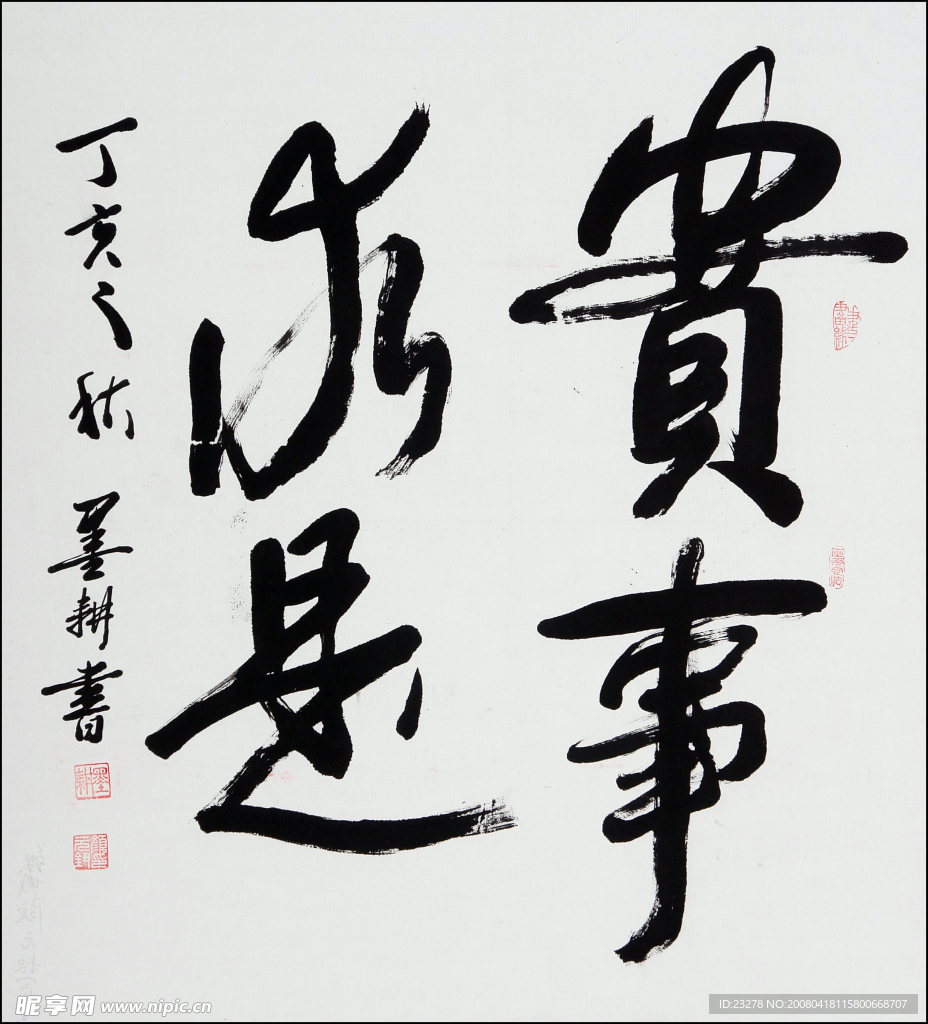 實事
求是
丁亥之秋 墨耕書
墨耕
昵享网 www.nipic.cn
ID:23278 NO:20080418115800668707